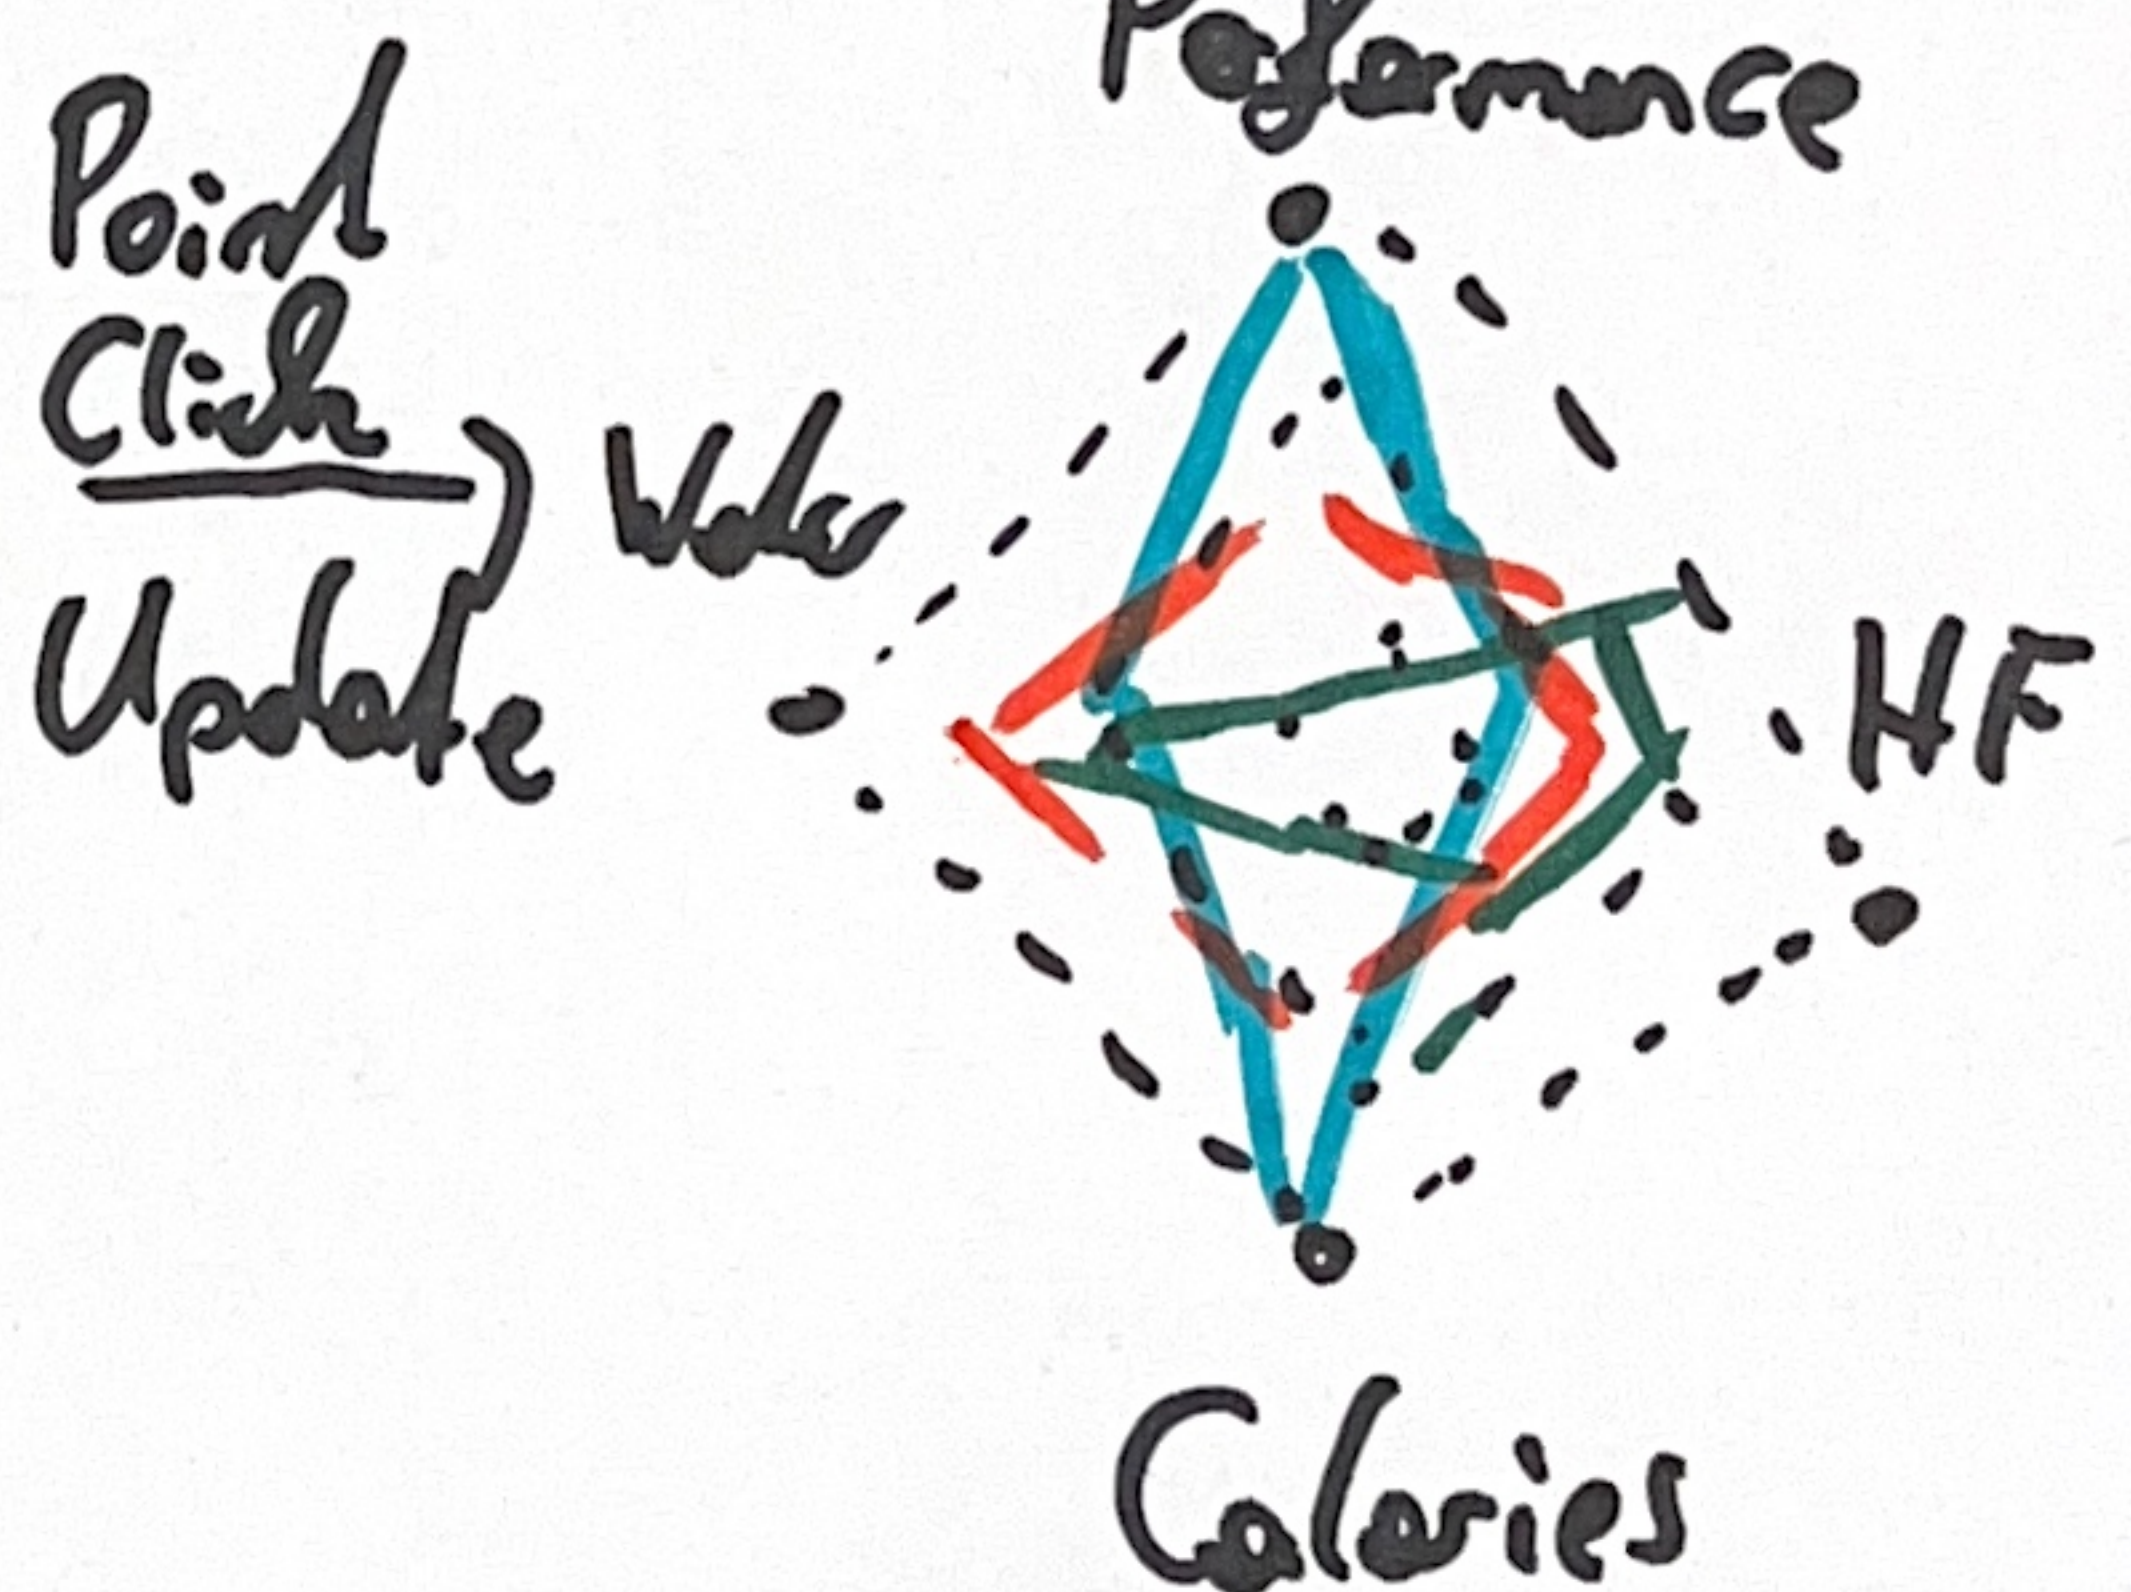 Point
Click
Update
Peformance
Water
HF
Calories